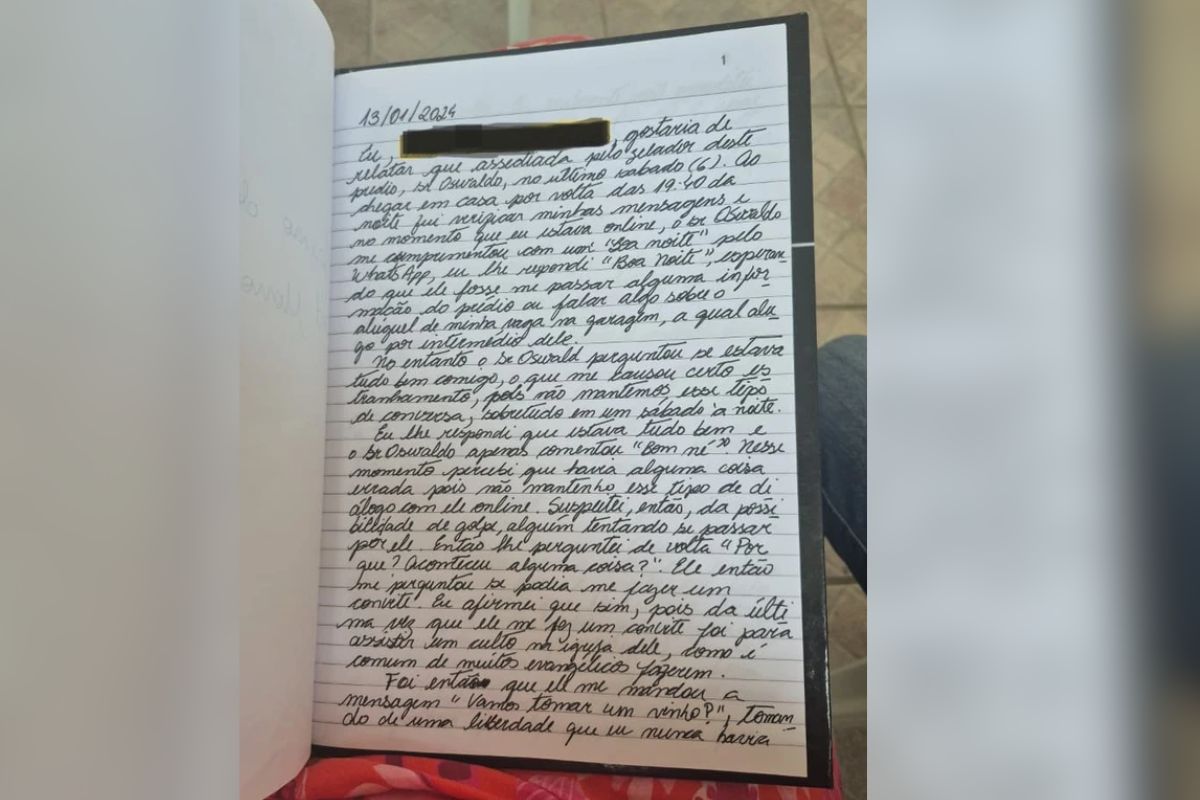 1
13/01/2024
Eu, , gostaria de
relatar que assediada pelo zelador deste
prédio, Sr Oswaldo, no último sábado (6). Ao
chegar em casa por volta das 19:40 da
noite fui verificar minhas mensagens e
no momento que eu estava online, o Sr Oswaldo
me comprimentou com um "Boa noite" pelo
WhatsApp, eu lhe respondi "Boa Noite", esperan-
do que ele fosse me passar alguma infor-
mação do prédio ou falar algo sobre o
aluguel de minha vaga na garagem, a qual alu-
go por intermédio dele.
No entanto o Sr Oswald perguntou se estava
tudo bem comigo, o que me causou certo es
tranhamento, pois não mantemos esse tipo
de conversa, sobretudo em um sábado à noite.
Eu lhe respondi que estava tudo bem e
o Sr Oswaldo apenas comentou "Bom né". Nesse
momento percebi que havia alguma coisa
errada pois não mantenho esse tipo de di
álogo com ele online. Suspeitei, então, da possi
bilidade de golpe, alguém tentando se passar
por ele. Então lhe perguntei de volta "Por
que? Aconteceu alguma coisa?". Ele então
me perguntou se podia me fazer um
convite. Eu afirmei que sim, pois da últi
ma vez que ele me fez um convite foi para
assistir um culto na igreja dele, como é
comum de muitos evangélicos fazerem.
Foi então que ele me mandou a
mensagem "Vamos tomar um vinho?", toman-
do de uma liberdade que eu nunca havia